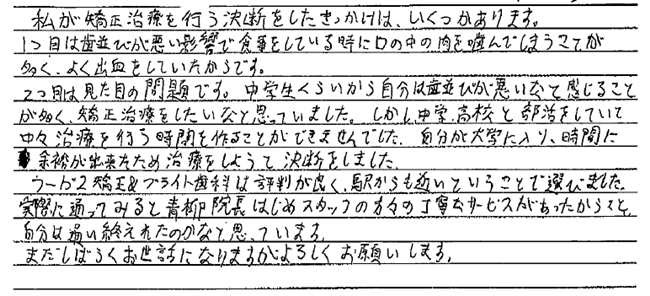 私が矯正治療を行う決断をしたきっかけは、いくつかあります。
1つ目は歯並びが悪い影響で食事をしている時に口の中の肉を噛んでしまうことが
多く、よく出血をしていたからです。
2つ目は見た目の問題です。中学生くらいから自分は歯並びが悪いなと感じること
が多く、矯正治療をしたいなと思っていました。しかし中学、高校と部活をしていて
中々治療を行う時間を作ることができませんでした。自分が大学に入り、時間に
余裕が出来たため治療をしようと決断をしました。
ワードス矯正&ブライト歯科は評判が良く、駅からも近いということで選びました。
実際に通ってみると青柳院長はじめスタッフの方々の丁寧なサービスがあったからこそ、
自分は通い終えれたのかなと思っています。
まだしばらくお世話になりますがよろしくお願いします。